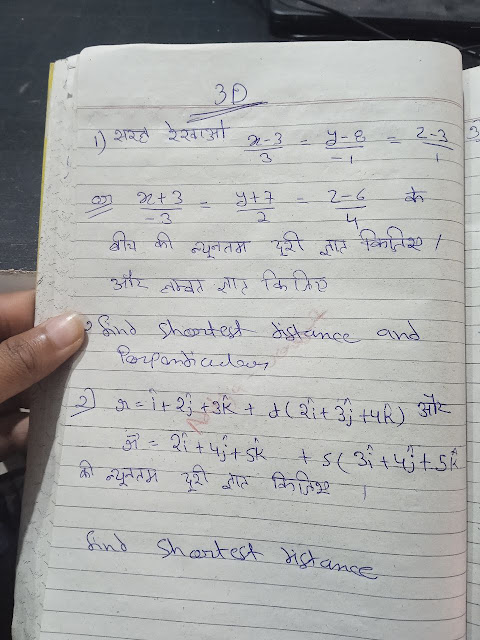 3D
1) सरल रेखाओ x-3/3 = y-8/-1 = z-3/1
x+3/-3 = y+7/2 = z-6/4 के
बीच की न्यूनतम दूरी ज्ञात किजिए /
और लम्बत ज्ञात किजिए
find shortest distance and
2) r = î + 2ĵ + 3k̂ + t(2î + 3ĵ + 4k̂) और
r⃗ = 2î + 4ĵ + 5k̂ + s(3î + 4ĵ + 5k̂
की न्यूनतम दूरी ज्ञात किजिए ।
find shortest distance